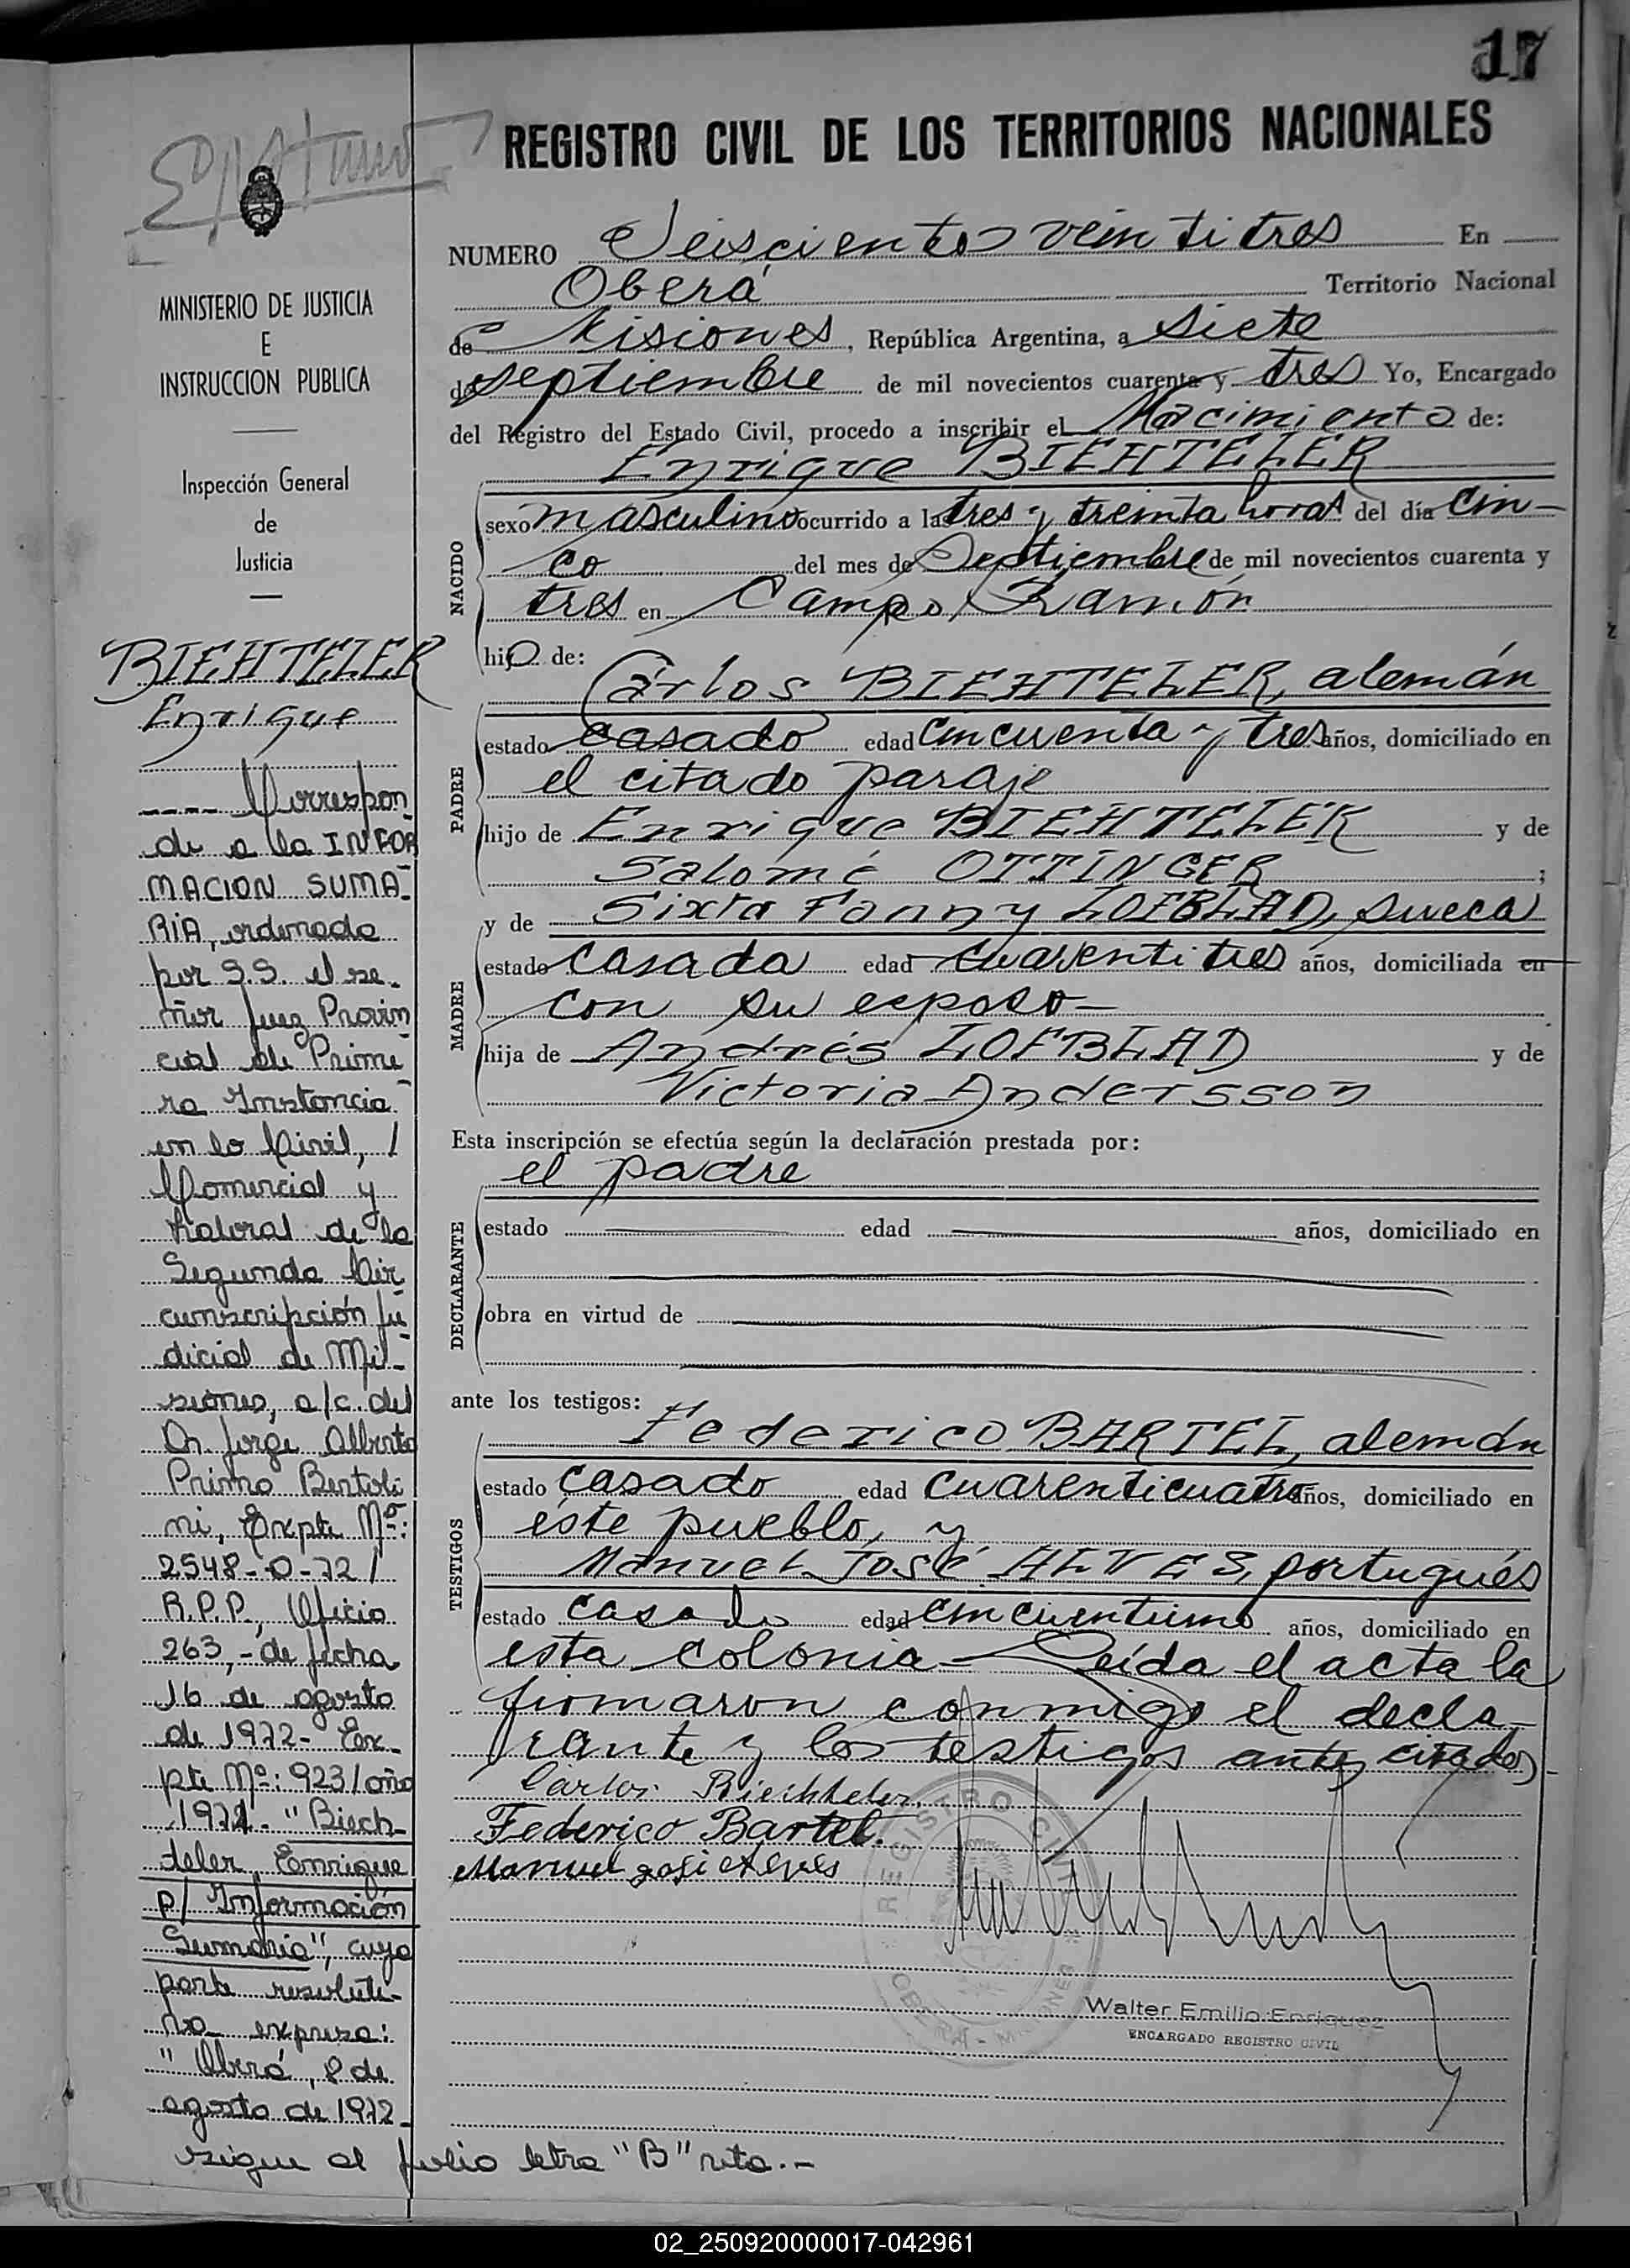 17
REGISTRO CIVIL DE LOS TERRITORIOS NACIONALES
MINISTERIO DE JUSTICIA
E
INSTRUCCION PUBLICA
Inspección General
de
Justicia
BIEHTELER
Enrique
---- Correspon
de a la INFOR
MACION SUMA-
RIA, ordenada
por S.S. el se-
ñor Juez Provin
cial de Prime-
ra Instancia
en lo Civil, /
Comercial y
Laboral de la
Segunda Cir
cunscripción Ju-
dicial de Mi-
siones, a/c. del
Dr. Jorge Alberto
Primo Bertoli
ni, Expte Nº:
2548-O-72/
R.P.P., Oficio
263,- de fecha
16 de agosto
de 1972- Ex-
pte Nº: 923/año
1971- "Biech-
teler, Enrique
p/ Información
Sumaria", cuya
parte resoluti-
va expresa:
"Oberá, 8 de
agosto de 1972-
sigue al folio letra "B" rito.-
NUMERO Seiscientos veintitres En
Oberá Territorio Nacional
de Misiones, República Argentina, a siete
de septiembre de mil novecientos cuarenta y tres Yo, Encargado
del Registro del Estado Civil, procedo a inscribir el Nacimiento de:
Enrique BIEHTELER
NACIDO
sexo masculino ocurrido a las tres y treinta horas del día cin-
co del mes de Septiembre de mil novecientos cuarenta y
tres en Campo Ramón
hijo de:
Carlos BIEHTELER, alemán
PADRE
estado casado edad cincuenta y tres años, domiciliado en
el citado paraje
hijo de Enrique BIEHTELER y de
Salomé OTTINGER ;
y de Sixta Fanny LOFBLAD, sueca
MADRE
estado casada edad cuarentitres años, domiciliada en
con su esposo-
hija de Andrés LOFBLAD y de
Victoria Andersson
Esta inscripción se efectúa según la declaración prestada por:
el padre
DECLARANTE
estado edad años, domiciliado en
obra en virtud de
ante los testigos:
Federico BARTEL, alemán
TESTIGOS
estado casado edad cuarenticuatro años, domiciliado en
éste pueblo, y
Manuel José ALVES, portugués
estado casado edad cincuentiuno años, domiciliado en
esta colonia- Leída el acta la
firmaron conmigo el decla-
rante y los testigos antes citados-
Carlos Biechteler
Federico Bartel.
Manuel José Alves
REGISTRO CIVIL
OBERÁ - MISIONES
Walter Emilio Enriquez
ENCARGADO REGISTRO CIVIL
02_250920000017-042961